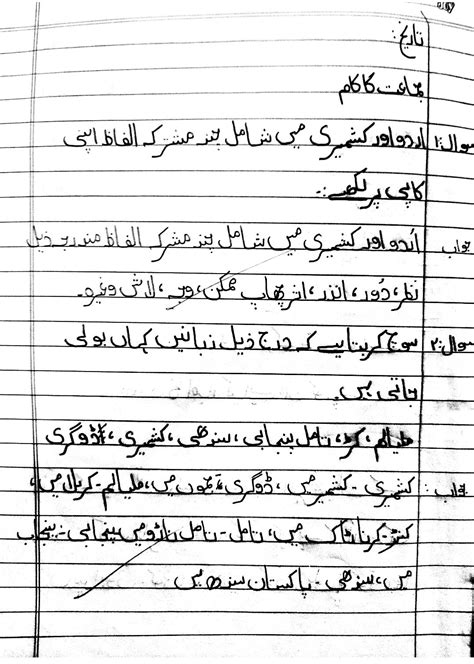 تاریخ:
جماعت کا کام
سوال:۱ اردو اور کشمیری میں شامل چند مشترکہ الفاظ اپنی
کاپی پر لکھے:۔
جواب اُردو اور کشمیری میں شامل چند مشترکہ الفاظ مندرجہ ذیل
نظر، دُور، اثر، چھاپ ممکن، وجہ، لاش وغیرہ۔
سوال:۲ سوچ کر بتایے کہ درج ذیل زبانیں کہاں بولی
جاتی ہیں۔
ملیالم، کنڑ، تامل پنجابی، سندھی، کشمیری، ڈوگری
جواب: کشمیری - کشمیر میں، ڈوگری، جموں میں، ملیالم - کیرالا میں،
کنڑ - کرناٹک میں، تامل - تامل ناڈو میں پنجابی - پنجاب
میں، سندھی - پاکستان سندھ میں